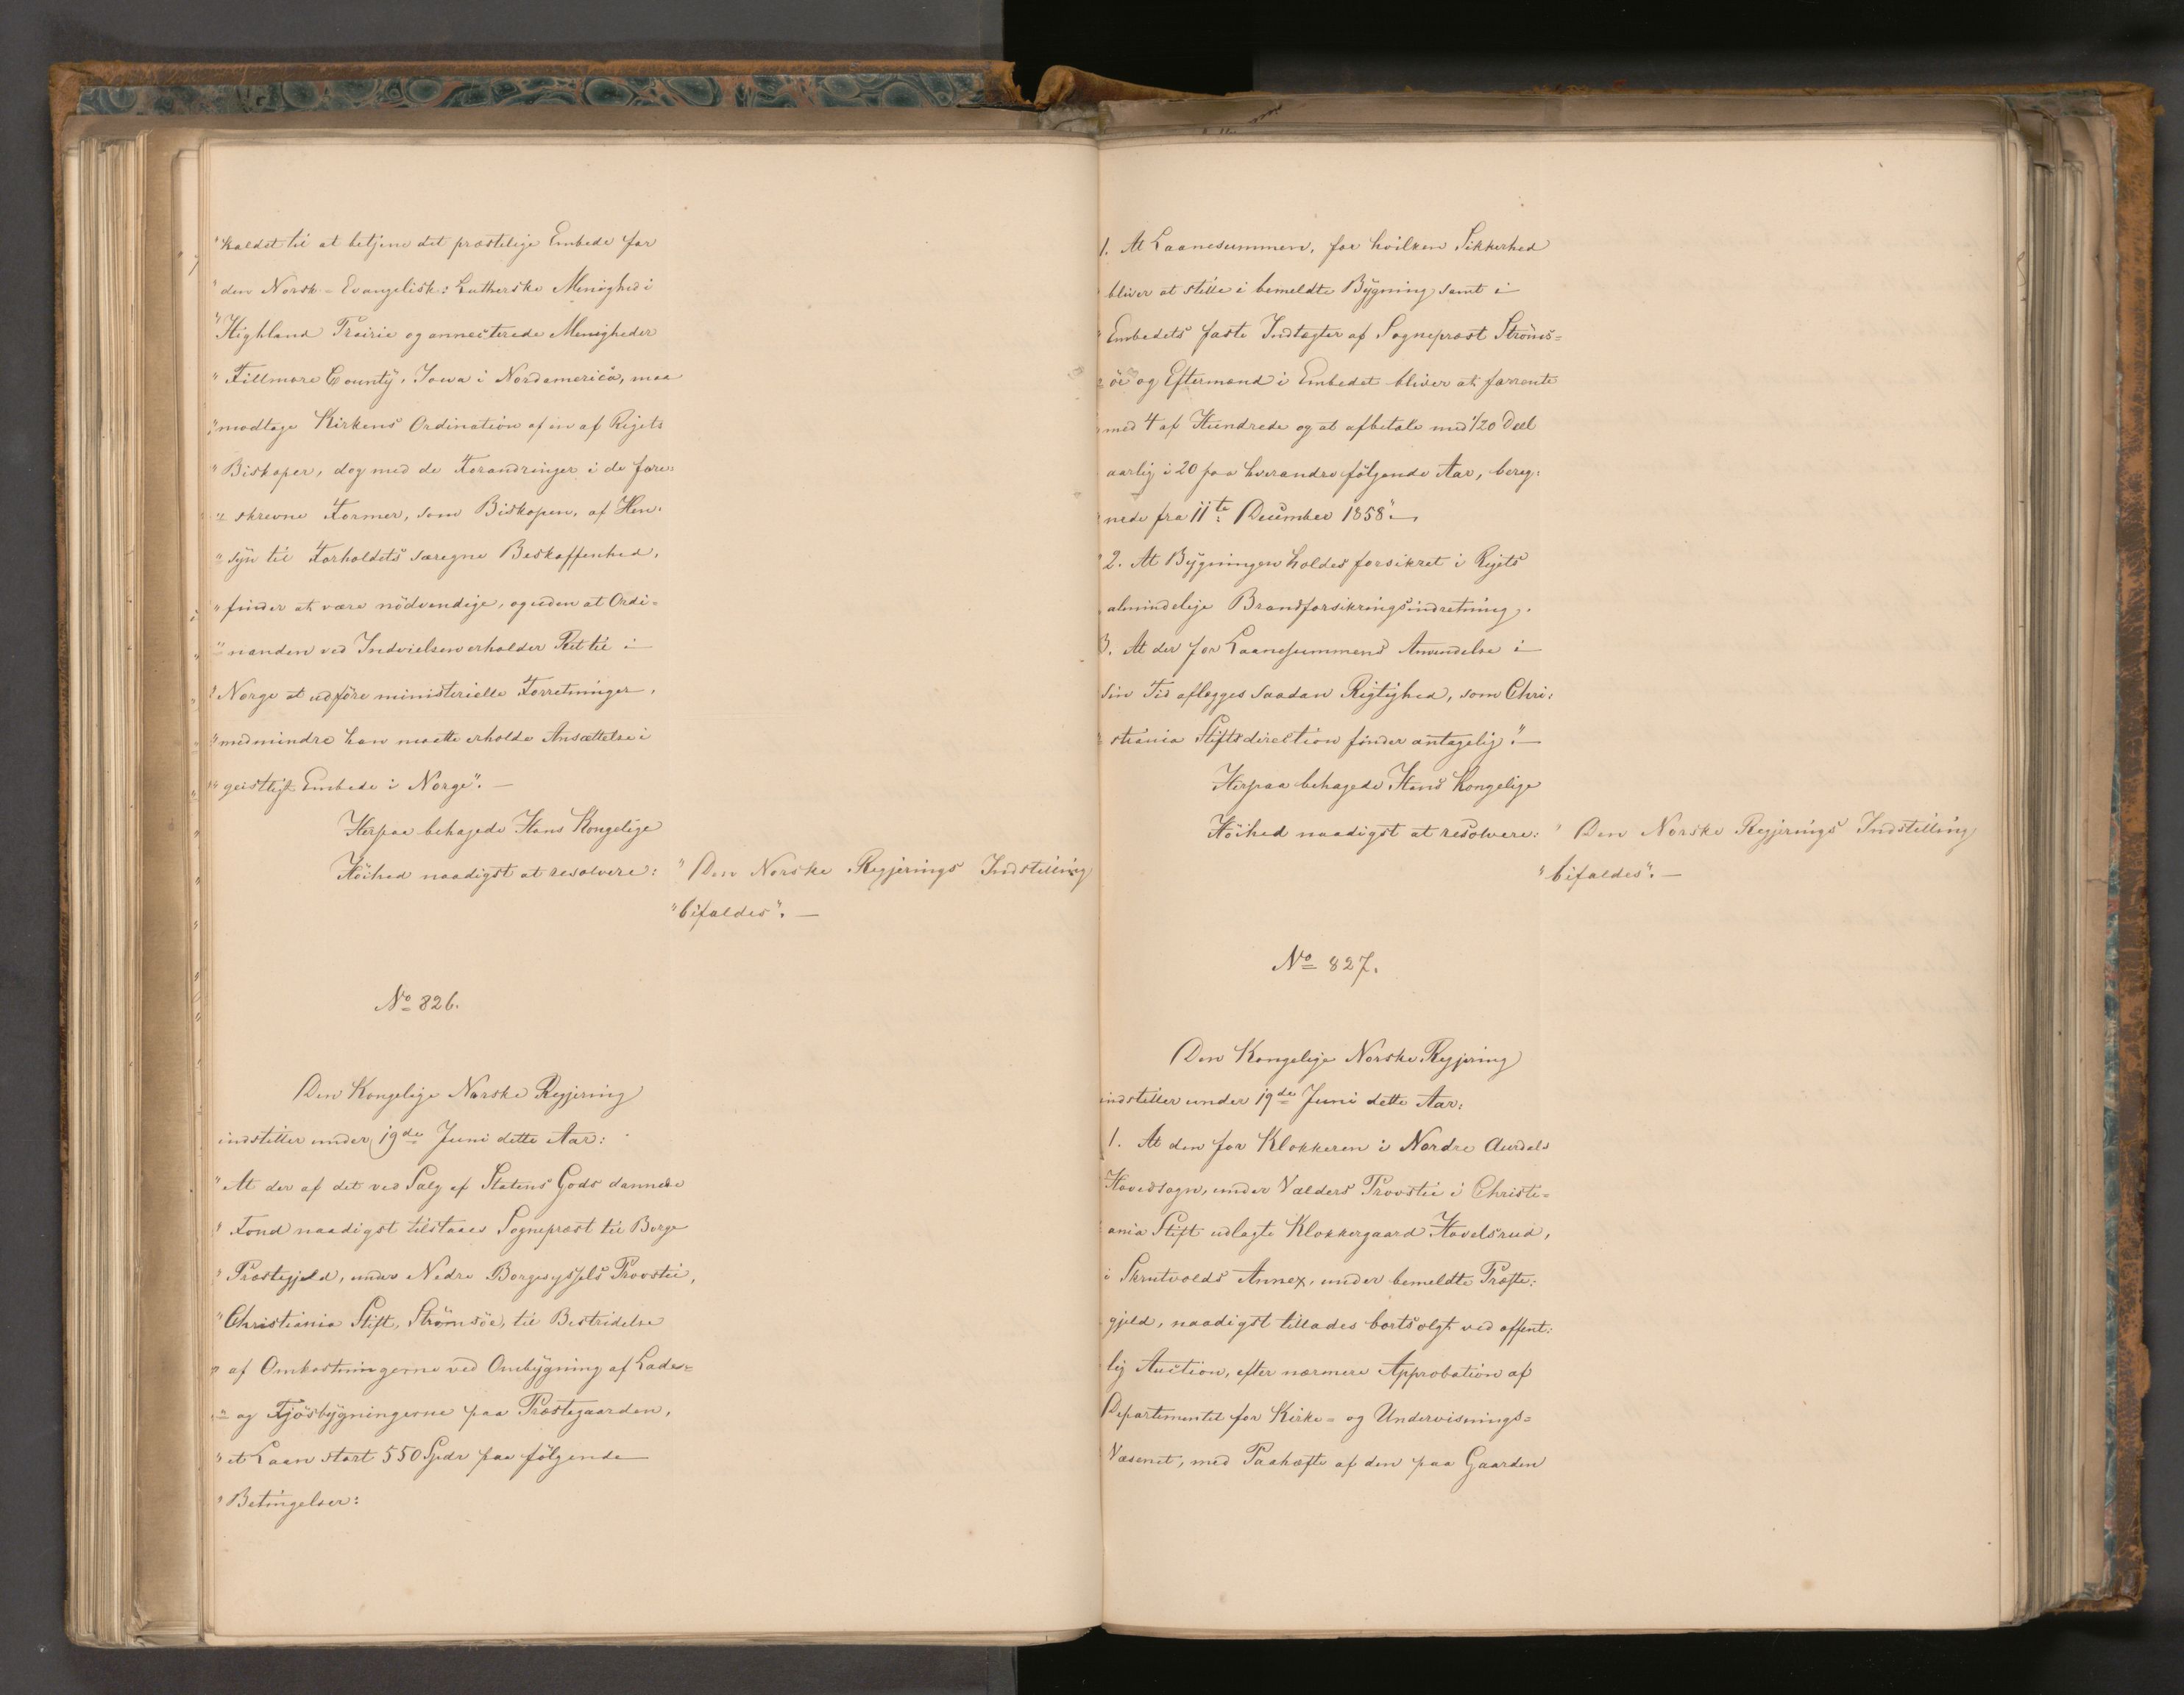 "kaldet til at betjene det præstelige Embede for
"den Norsk-Evangelisk: Lutherske Menighed i
"Highland Prairie og annecterede Menigheder
"Fillmore County, Iowa i Nordamerica, maa
"modtage Kirkens Ordination af en af Rigets
"Biskoper, dog med de Forandringer i de fore:
"skrevne Former, som Biskopen, af Hen:
"syn til Forholdets særegne Beskaffenhed,
"finder at være nödvendige, og uden at Ordi=
"nanden ved Indvielsen erholder Ret til i
"Norge at udføre ministerielle Forretninger,
"medmindre han maatte erholde Ansættelse i
"geistligt Embede i Norge". —
Herpaa behagede Hans Kongelige
Höihed naadigst at resolvere: "Den Norske Regjerings Indstilling
"bifaldes". —
No 826.
Den Kongelige Norske Regjering
indstiller under 19de Juni dette Aar:
"At der af det ved Salg af Statens Gods dannede
"Fond naadigst tilstaaes Sognepræst til Borge
"Præstegjeld, under Nedre Borgesyssels Provstie,
"Christiania Stift, Strömsöe, til Bestridelse
"af Omkostningerne ved Ombygning af Lade=
"og Fjösbygningerne paa Præstegaarden,
"et Laan stort 550 Spdr paa følgende
"Betingelser:
1. At Laanesummen, for hvilken Sikkerhed
bliver at stille i bemeldte Bygning samt i
"Embedets faste Indtægter af Sognepræst Ströms=
"öe og Eftermænd i Embedet bliver at forrente
"med 4 af Hundrede og at afbetale med 1/20 Deel
aarlig i 20 paa hverandre følgende Aar, bereg:
nede fra 11te December 1858". —
"2. At Bygningen holdes forsikret i Rigets
almindelige Brandforsikringsindretning.
3. At der for Laanesummens Anvendelse i
sin Tid aflægges saadan Rigtighed, som Chri:
"stiania Stiftsdirection finder antagelig". —
Herpaa behagede Hans Kongelige
Höihed naadigst at resolvere: "Den Norske Regjerings Indstilling
"bifaldes". —
No 827.
Den Kongelige Norske Regjering
indstiller under 19de Juni dette Aar:
1. At den for Klokkeren i Nordre Aurdals
Hovedsogn, under Valders Provstie i Christi=
ania Stift udlagte Klokkergaard Hovelsrud,
i Skrutvolds Annex, under bemeldte Præste:
gjeld, naadigst tillades bortsolgt ved offent:
lig Auction, efter nærmere Approbation af
Departementet for Kirke= og Undervisnings=
Væsenet, med Paahæfte af den paa Gaarden